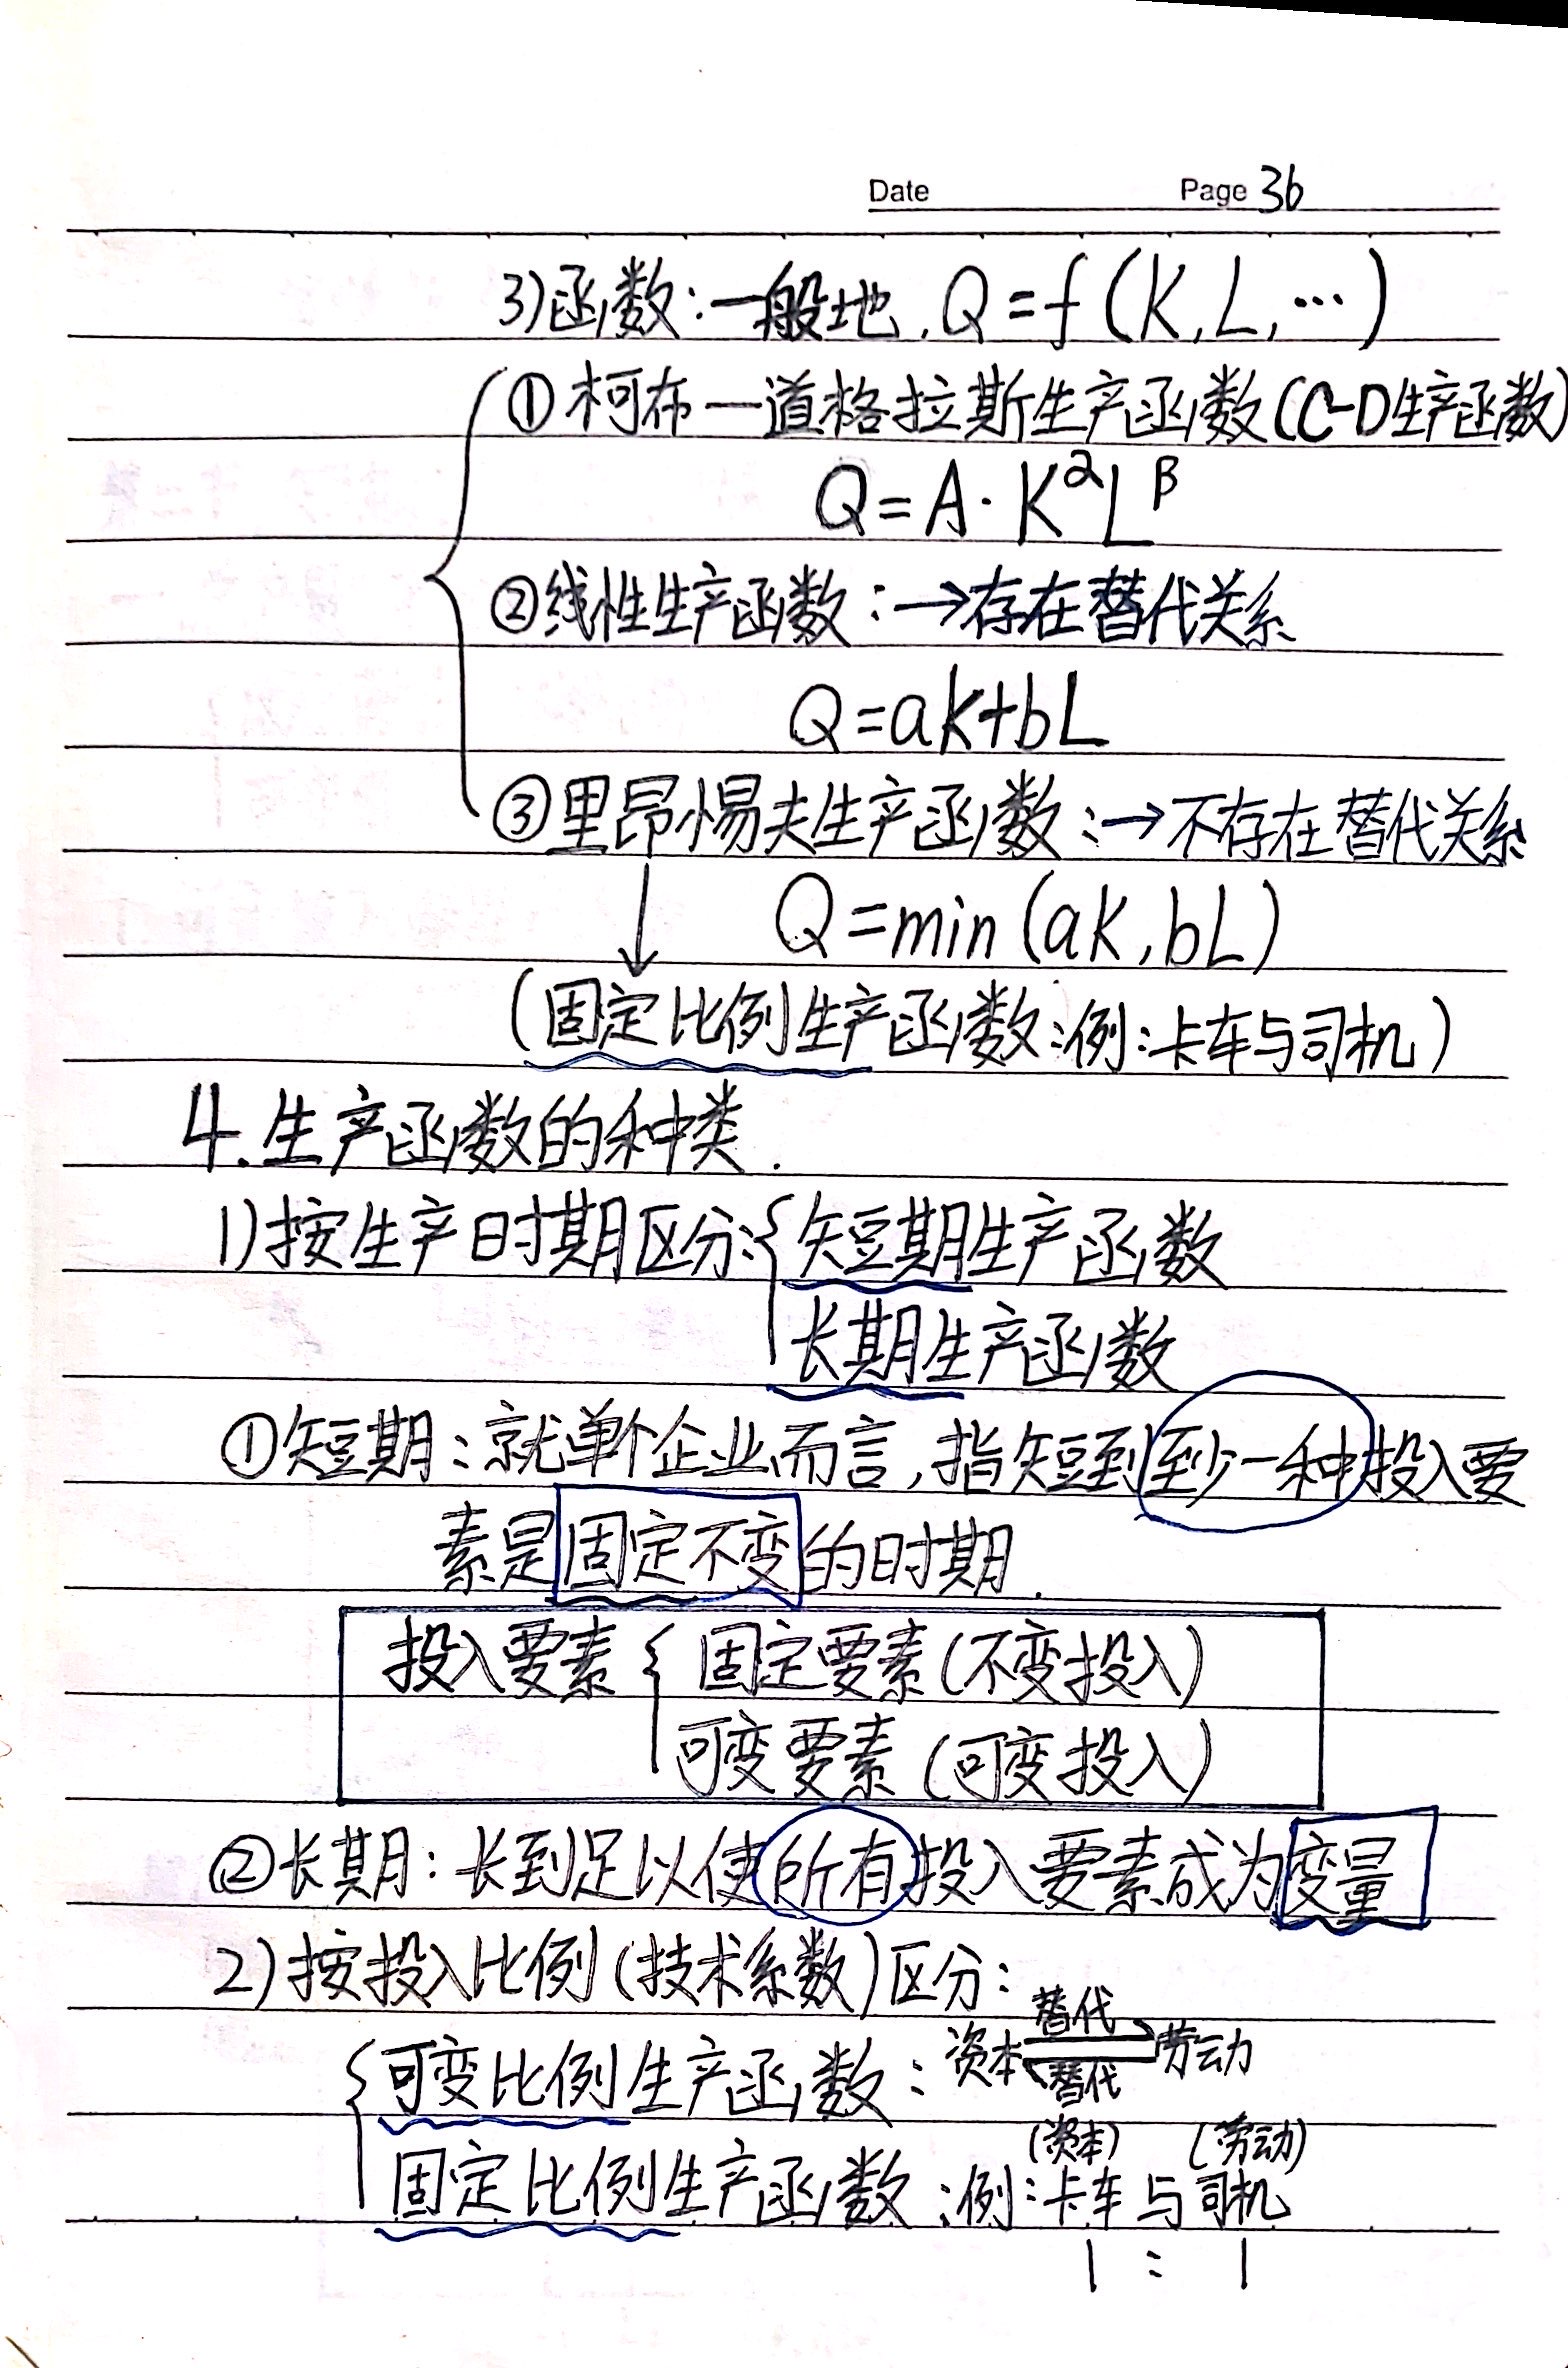 Date Page 36
3)函数:一般地,Q=f(K,L,…)
①柯布一道格拉斯生产函数(C-D生产函数)
Q=A·K^αL^β
②线性生产函数:→存在替代关系
Q=aK+bL
③里昂惕夫生产函数:→不存在替代关系
↓ Q=min(aK,bL)
(固定比例生产函数:例:卡车与司机)
4.生产函数的种类.
1)按生产时期区分:{短期生产函数
长期生产函数
①短期:就单个企业而言,指短到至少一种投入要
素是固定不变的时期.
投入要素{固定要素(不变投入)
可变要素(可变投入)
②长期:长到足以使所有投入要素成为变量
2)按投入比例(技术系数)区分:
替代
{可变比例生产函数:资本⇌劳动
替代
(资本) (劳动)
固定比例生产函数:例:卡车与司机
1 : 1